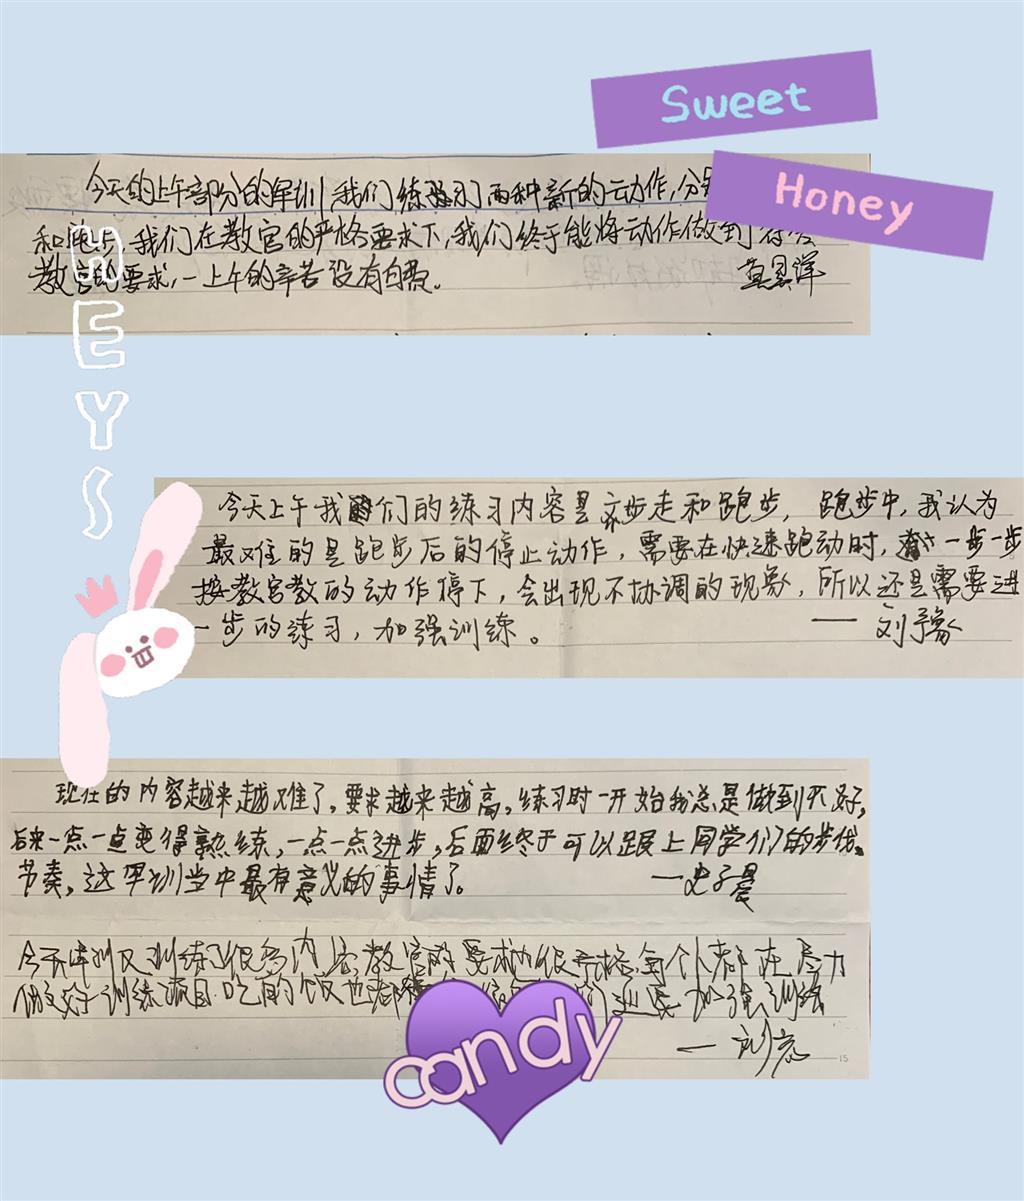 Sweet
Honey
HEYS
今天的上午部分的军训,我们练习了两种新的动作,分
和跑步,我们在教官的严格要求下,我们终于能将动作做到
教官的要求,一上午的辛苦没有白费。
今天上午我们的练习内容是齐步走和跑步,跑步中,我认为
最难的是跑步后的停止动作,需要在快速跑动时,一步一步
按教官教的动作停下,会出现不协调的现象,所以还是需要进
一步的练习,加强训练。 — 刘予豪
现在的内容越来越难了,要求越来越高,练习时一开始我总是做到不好,
后来一点一点变得熟练,一点一点进步,后面终于可以跟上同学们的步伐、
节奏,这军训当中最有意义的事情了。 一史子晨
今天军训又训练了很多内容,教官的要求也很严格,每个人都在尽力
做好训练项目.吃的饭也都 加强训练
candy
15